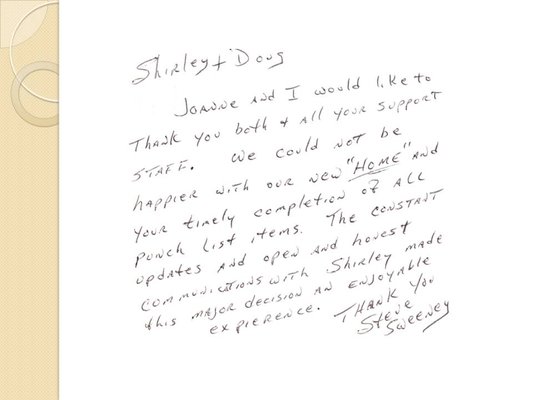 Shirley + Doug
Joanne and I would like to
Thank you both + all your support
staff. We could not be
happier with our new "Home" and
your timely completion of all
punch list items. The constant
updates and open and honest
communications with Shirley made
this major decision an enjoyable
expierence. Thank You
Steve
Sweeney